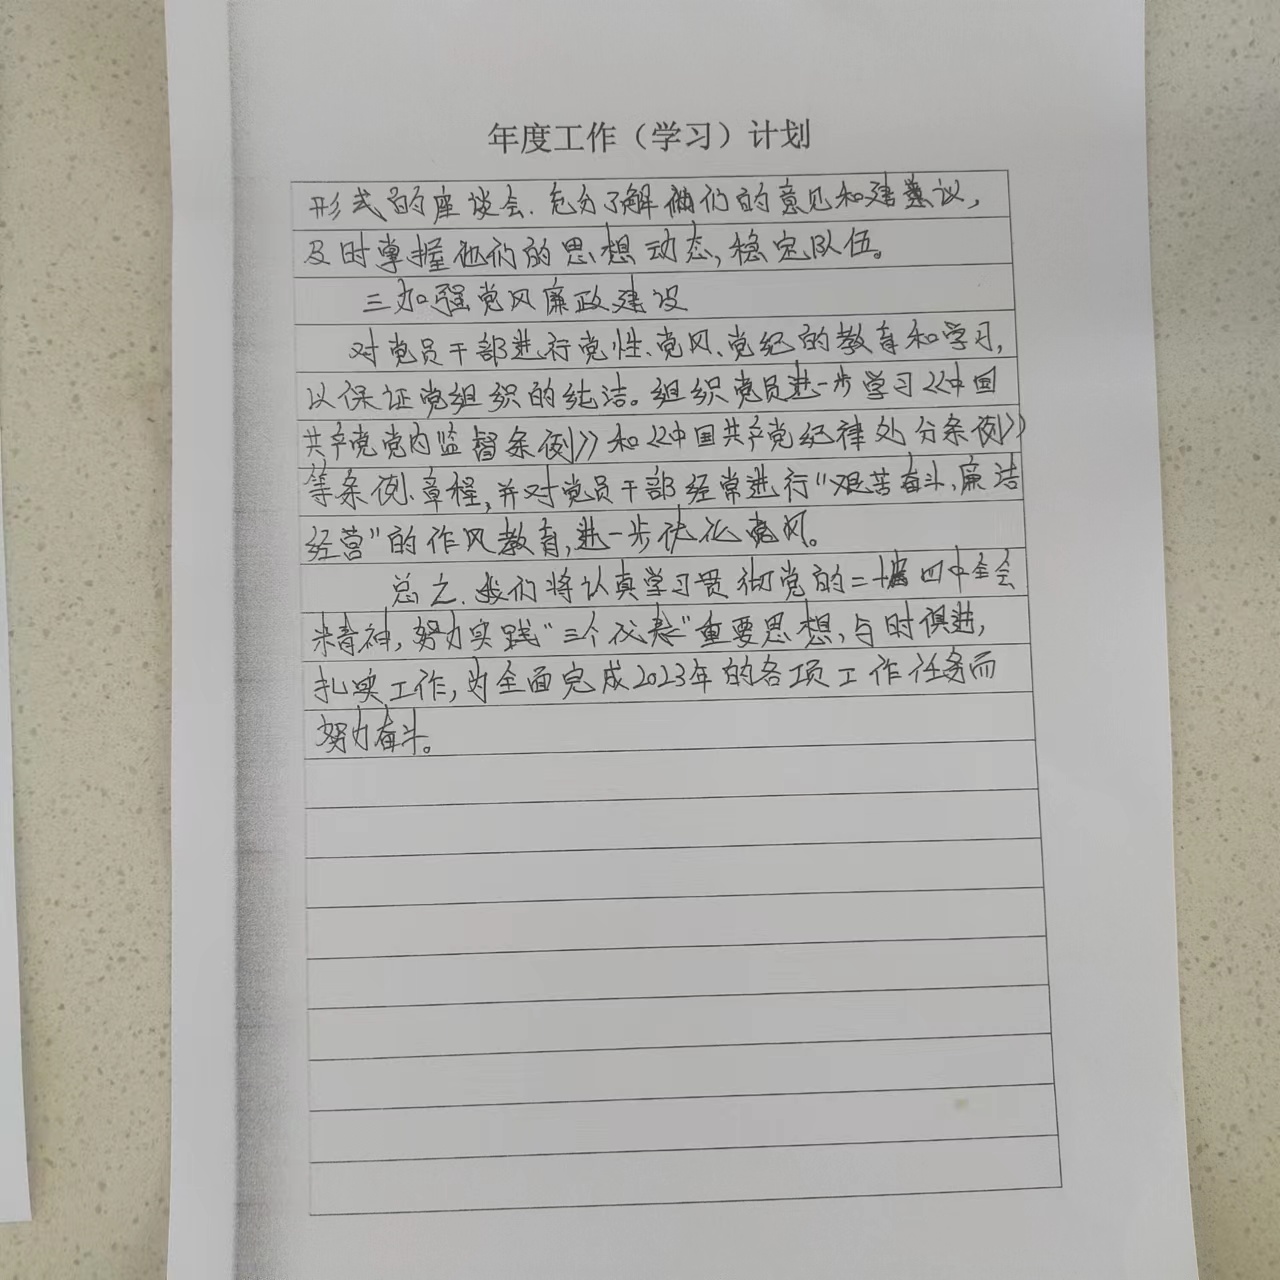 年度工作（学习）计划
形式的座谈会、充分了解他们的意见和建议，
及时掌握他们的思想动态，稳定队伍。
三加强党风廉政建设
对党员干部进行党性、党风、党纪的教育和学习，
以保证党组织的纯洁。组织党员进一步学习《中国
共产党党内监督条例》和《中国共产党纪律处分条例》
等条例、章程，并对党员干部经常进行"艰苦奋斗、廉洁
经营"的作风教育，进一步优化党风。
总之、我们将认真学习贯彻党的二十届四中全会
精神，努力实践"三个代表"重要思想，与时俱进，
扎实工作，为全面完成2023年的各项工作任务而
努力奋斗。